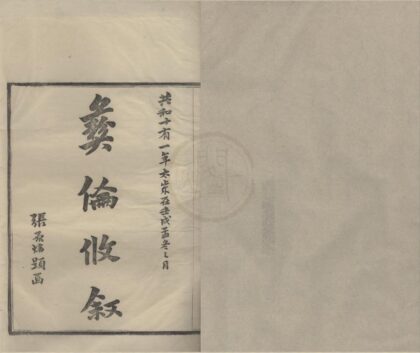 共和十有一年太歲在壬戌孟冬之月
彝倫攸敘
張 題